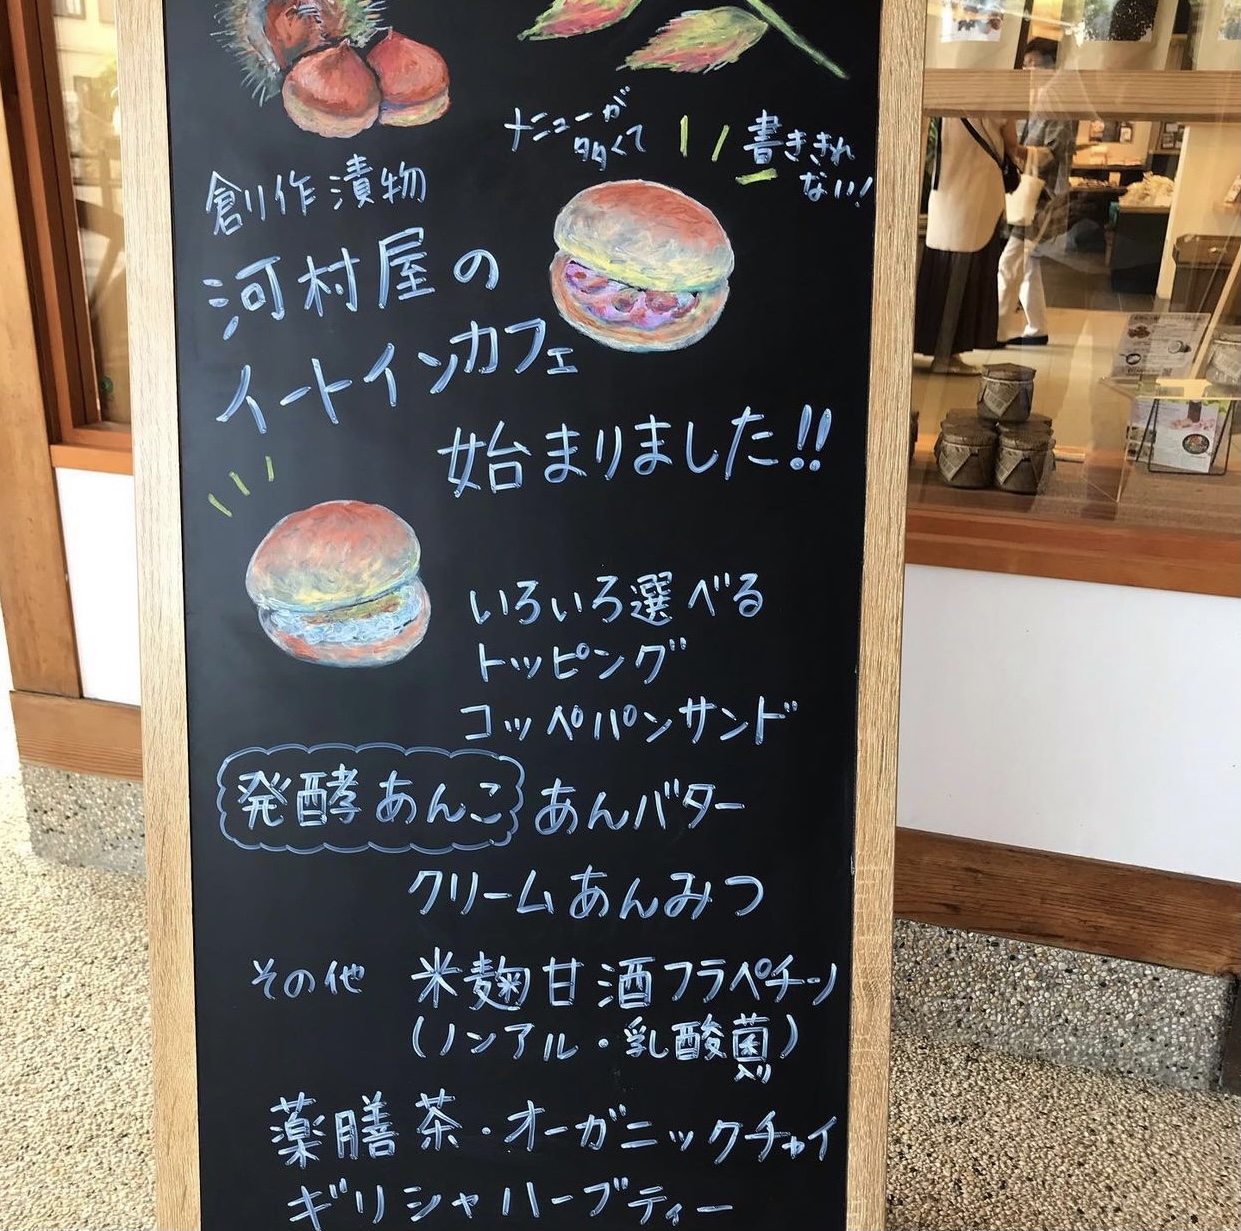 メニューが
多くて
書ききれ
ない!
創り作漬物
河村屋の
イートインカフェ
始まりました!!
いろいろ選べる
トッピング
コッペパンサンド
発酵あんこ あんバター
クリームあんみつ
その他 米麹甘酒フラペチーノ
(ノンアル・乳酸菌入り)
薬膳茶・オーガニックチャイ
ギリシャハーブティー